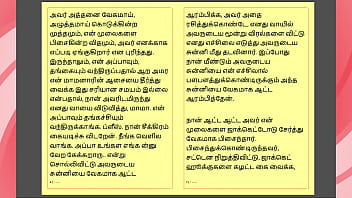 அவர் அத்தனை வேகமாய்,
அழுத்தமாய் கொடுக்கின்ற
முத்தமும், என் முலைகளை
பிசைகின்ற விதமும், அவர் எனக்காக
எப்படி ஏங்குகிறார் என புரிந்தது.
இருந்தாலும், என் அப்பாவும்,
தங்கையும் வந்திருப்பதால் ஆற அமர
என் மாமனாரின் ஆசையை தீர்த்து
வைக்க இது சரியான சமயம் இல்லை
என்பதால், நான் அவரிடமிருந்து
எனது வாயை விடுவித்து, மாமா. என்
அப்பாவும் தங்கச்சியும்
வந்திருக்காங்க. ப்ளீஸ். நான் சீக்கிரம்
கையடிச்சு விடறேன். நீங்க வெளில
வாங்க. அப்பா உங்கள எங்க ன்னு
வேற கேக்கறாரு. என்று
சொல்லிவிட்டு அவருடைய
சுன்னியை வேகமாக ஆட்ட
ஆரம்பிக்க, அவர் அதை
ரசித்துக்கொண்டே எனது வாயில்
அவருடைய மூன்று விரல்களை விட்டு
என் எச்சிலை எடுத்து அவருடைய
சுன்னி மீது தடவினார். இப்போது
நான் மீண்டும் அவருடைய
சுன்னியை என் எச்சிலால்
பளபளத்துக்கொண்டிருக்கும் அந்த
சுன்னியை வேகமாக ஆட்ட
ஆரம்பித்தேன்.
நான் ஆட்ட ஆட்ட, அவர் என்
முலைகளை ஜாக்கெட்டோடு சேர்த்து
வேகமாக பிசைந்தார்.
பிசைந்துக்கொண்டிருந்தவர்,
சட்டென நிறுத்திவிட்டு, ஜாக்கெட்
ஹூக்குகளை கழட்ட கை வைக்க,